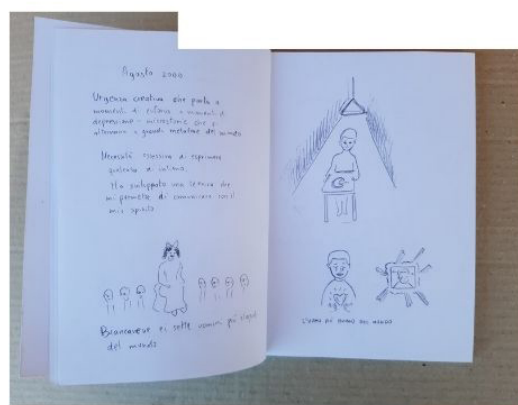 Agosto 2000
Urgenza creativa che porta a
momenti di euforia e momenti di
depressione - microstorie che si
alternano a grandi metafore del mondo
Necessità ossessiva di esprimere
qualcosa di intimo.
Ho sviluppato una tecnica che
mi permette di comunicare con il
mio spirito.
e i sette uomini più stupidi
del mondo
L'uomo più del mondo